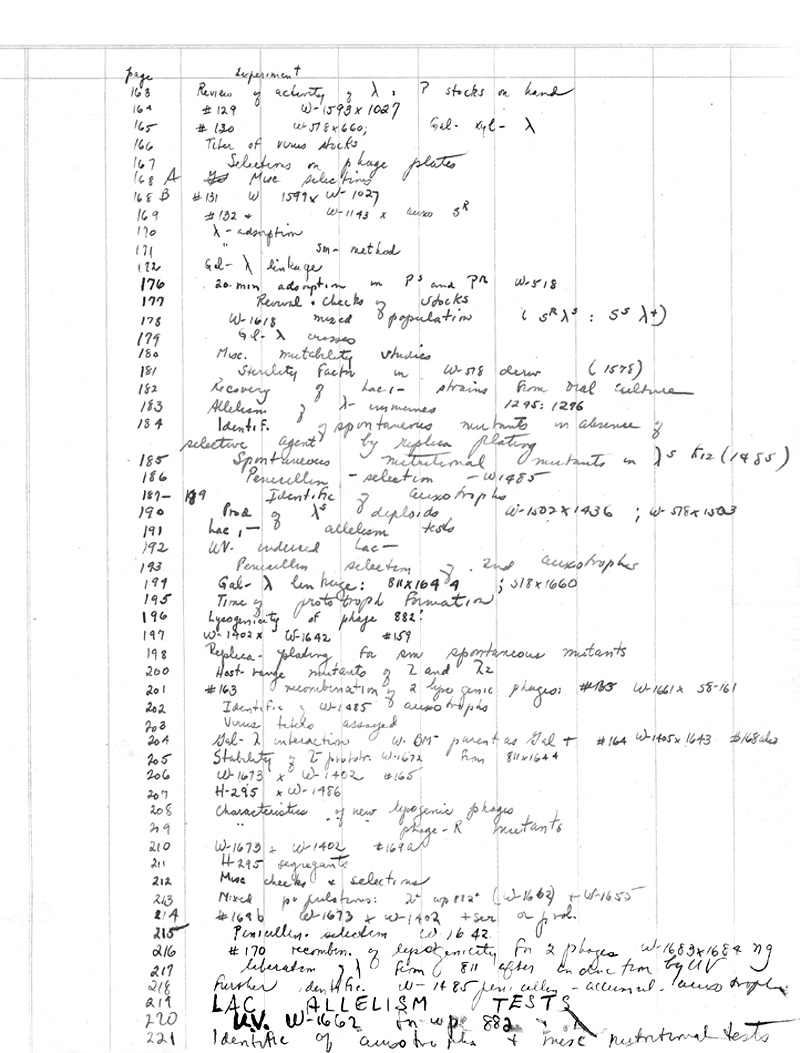 page Experiment
163 Review of activity of λ: P stocks on hand
164 #129 W-1593 x 1027
165 #130 W-578 x 660; Gal- Xyl- λ
166 Titer of virus stocks
167 Selections on phage plates
168 A Misc selections
168 B #131 W 1599 x W-1027
169 #132 W-1143 x auxo S^R
170 λ-adsorption
171 " Sm-method
172 Gal- λ linkage
176 20 min adsorption in P^S and P^R W-518
177 Revival + checks of stocks
178 W-1618 mixed population (S^R λ^S : S^S λ+)
179 Gal-λ crosses
180 Misc. mutability studies
181 Sterility Factor in W-578 deriv (1578)
182 Recovery of Lac,- strains from old culture
183 Allelism of λ-immunes 1295; 1296
184 Identif. of spontaneous mutants in absence of
selective agent by replica plating
185 Spontaneous nutritional mutants in λ^S K12 (1485)
186 Penicillin-selection -W1485
187-189 Identific of auxotrophs
190 Prod of λ^S diploids W-1502 x 1436 ; W-578 x 1503
191 Lac,- allelism tests
192 UV. induced Lac-
193 Penicillin selection of 2nd auxotrophs
194 Gal- λ linkage: 811 x 1644 ; 518 x 1660
195 Time of prototroph Formation
196 Lysogenicity of phage 882:
197 W-1402 x W-1642 #159
198 Replica-plating for sm spontaneous mutants
200 Host-range mutants of λ and λ2
201 #163 recombination of 2 lysogenic phages: W-1661 x 58-161
202 Identific of W-1485 auxotrophs
203 Virus titers assayed
204 Gal-λ interaction W. BM- parent as Gal+ #164 W-1405 x 1643 #168
205 Stability of prototr. W-1672 from 811 x 1644
206 W-1673 x W-1402 #165
207 H-295 x W-1486
208 Characteristics of new lysogenic phages
209 " " phage-R mutants
210 W-1673 x W-1402 #169a
211 H-295 segregants
212 Misc checks & selections
213 Mixed populations: λ+ wp882+ (W-1662) + W-1655
214 #169b W-1673 x W-1402 + ser or prol.
215 Penicillin-selection W 1642
216 #170 recombin. of lysogenicity for 2 phages W-1683 x 1684 ng
217 liberation of λ from 811 after induction by UV
218 Further identific. W-1485 penicillin-accumul. auxotrophs
219 LAC ALLELISM TESTS
220 U.V. W-1662 in wp 882
221 Identific of auxotrophs + misc nutritional tests